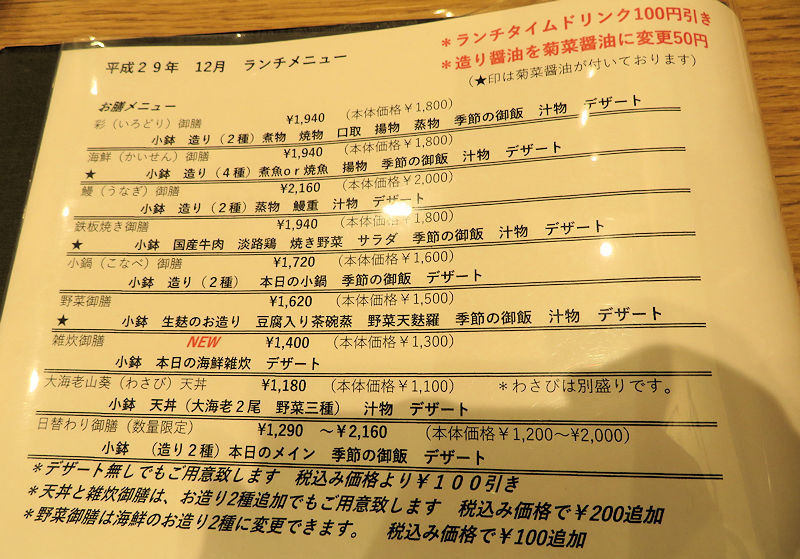 平成２９年　12月　ランチメニュー
＊ランチタイムドリンク100円引き
＊造り醤油を菊菜醤油に変更50円
（★印は菊菜醤油が付いております）
お膳メニュー
彩（いろどり）御膳　¥1,940　（本体価格￥1,800）
小鉢　造り（２種）煮物　焼物　口取　揚物　蒸物　季節の御飯　汁物　デザート
海鮮（かいせん）御膳　¥1,940　（本体価格￥1,800）
★　小鉢　造り（４種）煮魚or焼魚　揚物　季節の御飯　汁物　デザート
鰻（うなぎ）御膳　¥2,160　（本体価格￥2,000）
小鉢　造り（２種）蒸物　鰻重　汁物　デザート
鉄板焼き御膳　¥1,940　（本体価格￥1,800）
★　小鉢　国産牛肉　淡路鶏　焼き野菜　サラダ　季節の御飯　汁物　デザート
小鍋（こなべ）御膳　¥1,720　（本体価格￥1,600）
小鉢　造り（２種）　本日の小鍋　季節の御飯　デザート
野菜御膳　¥1,620　（本体価格￥1,500）
★　小鉢　生麩のお造り　豆腐入り茶碗蒸　野菜天麩羅　季節の御飯　汁物　デザート
雑炊御膳　NEW　¥1,400　（本体価格￥1,300）
小鉢　本日の海鮮雑炊　デザート
大海老山葵（わさび）天丼　¥1,180　（本体価格￥1,100）　＊わさびは別盛りです。
小鉢　天丼（大海老２尾　野菜三種）　汁物　デザート
日替わり御膳（数量限定）　¥1,290　～￥2,160　（本体価格￥1,200～￥2,000）
小鉢　（造り２種）本日のメイン　季節の御飯　デザート
＊デザート無しでもご用意致します　税込み価格より￥１００引き
＊天丼と雑炊御膳は、お造り2種追加でもご用意致します　税込み価格で￥200追加
＊野菜御膳は海鮮のお造り2種に変更できます。　税込み価格で￥100追加